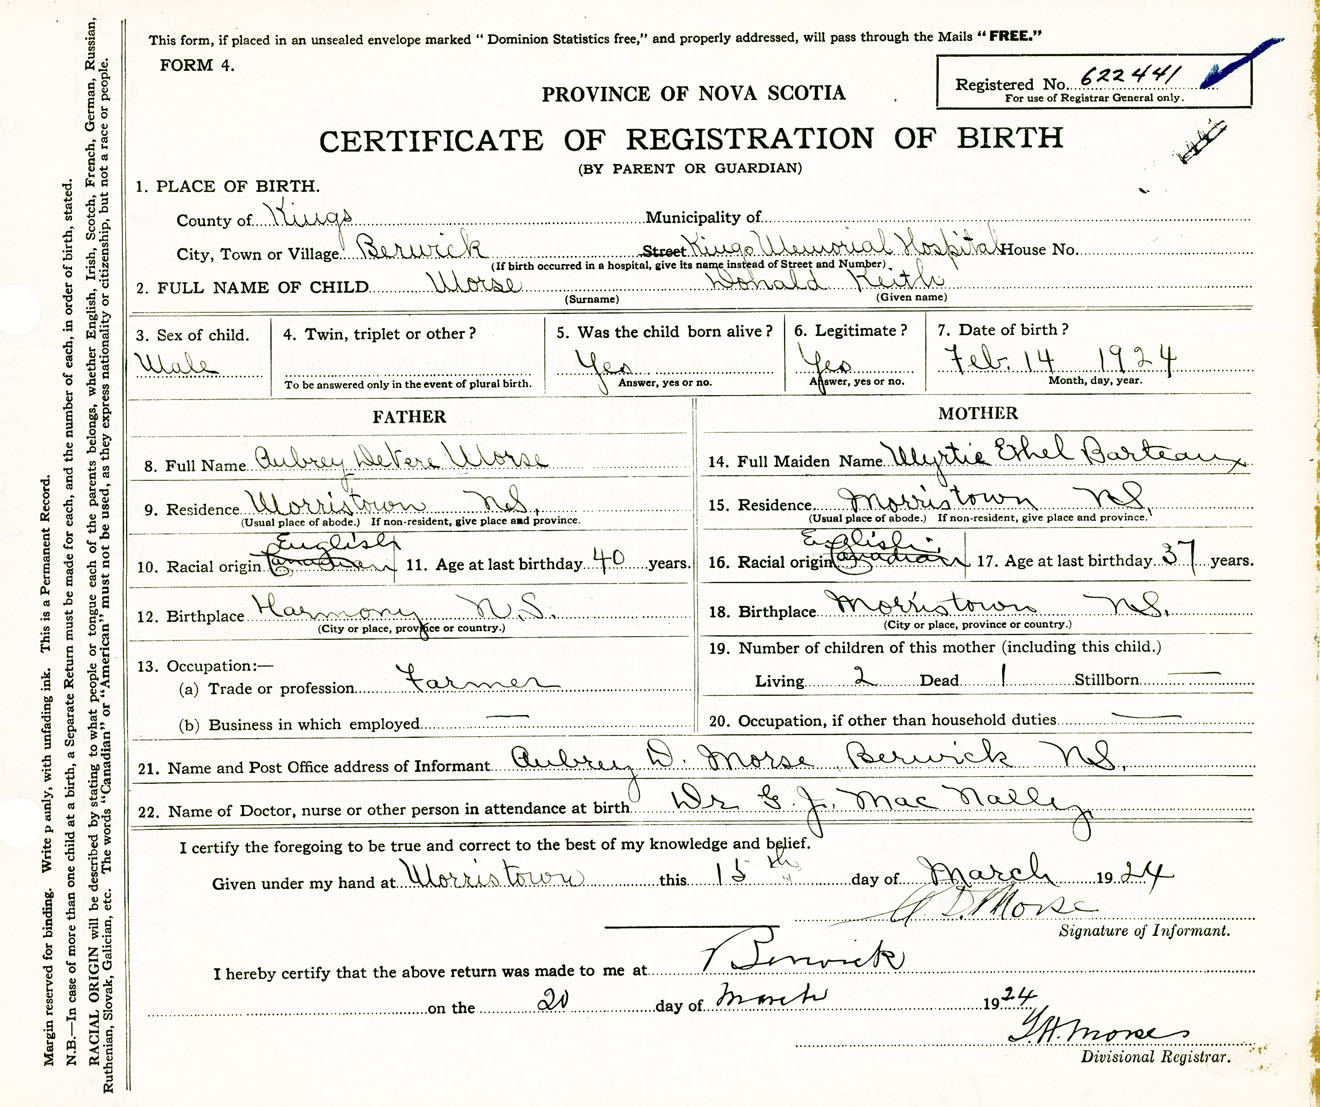 This form, if placed in an unsealed envelope marked “ Dominion Statistics free,” and properly addressed, will pass through the Mails “ FREE.”
FORM 4.
Registered No. 622441
For use of Registrar General only.
PROVINCE OF NOVA SCOTIA
CERTIFICATE OF REGISTRATION OF BIRTH
(BY PARENT OR GUARDIAN)
1. PLACE OF BIRTH.
County of Kings Municipality of
City, Town or Village Berwick Street Kings Memorial Hospital House No.
(If birth occurred in a hospital, give its name instead of Street and Number).
2. FULL NAME OF CHILD Morse Donald Keith
(Surname) (Given name)
3. Sex of child. 4. Twin, triplet or other ? 5. Was the child born alive ? 6. Legitimate ? 7. Date of birth ?
Male Yes Yes Feb. 14 1924
To be answered only in the event of plural birth. Answer, yes or no. Answer, yes or no. Month, day, year.
FATHER
8. Full Name Aubrey DeVere Morse
9. Residence Morristown N.S.,
(Usual place of abode.) If non-resident, give place and province.
English
10. Racial origin Canadian 11. Age at last birthday 40 years.
12. Birthplace Harmony N.S.
(City or place, province or country.)
13. Occupation:—
(a) Trade or profession Farmer
(b) Business in which employed —
MOTHER
14. Full Maiden Name Myrtie Ethel Barteaux
15. Residence Morristown NS,
(Usual place of abode.) If non-resident, give place and province.
English
16. Racial origin Canadian 17. Age at last birthday 37 years.
18. Birthplace Morristown NS.
(City or place, province or country.)
19. Number of children of this mother (including this child.)
Living 2 Dead 1 Stillborn —
20. Occupation, if other than household duties —
21. Name and Post Office address of Informant Aubrey D. Morse Berwick NS,
22. Name of Doctor, nurse or other person in attendance at birth Dr G. J. MacNally
I certify the foregoing to be true and correct to the best of my knowledge and belief.
Given under my hand at Morristown this 15th day of March 1924
A D. Morse
Signature of Informant.
I hereby certify that the above return was made to me at Berwick
on the 20 day of March 1924
Morse
Divisional Registrar.
Margin reserved for binding. Write p ainly, with unfading ink. This is a Permanent Record.
N.B.—In case of more than one child at a birth, a Separate Return must be made for each, and the number of each, in order of birth, stated.
RACIAL ORIGIN will be described by stating to what people or tongue each of the parents belongs, whether English, Irish, Scotch, French, German, Russian,
Ruthenian, Slovak, Galician, etc. The words “Canadian” or “American” must not be used, as they express nationality or citizenship, but not a race or people.